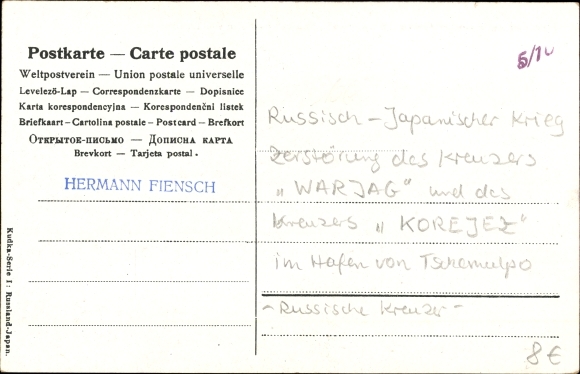 Postkarte — Carte postale
Weltpostverein — Union postale universelle
Levelező-Lap — Correspondenzkarte — Dopisnice
Karta korespondencyjna — Korespondenčni listek
Briefkaart – Cartolina postale – Postcard – Brefkort
Открытое-письмо — Дописна карта
Brevkort — Tarjeta postal.
HERMANN FIENSCH
Kudka-Serie I: Russland-Japan.
5/10
Russisch-Japanischer Krieg
Zerstörung des Kreuzers
„WARJAG" und des
Kreuzers „KOREJEZ"
im Hafen von Tschemulpo
- Russische Kreuzer -
8 €